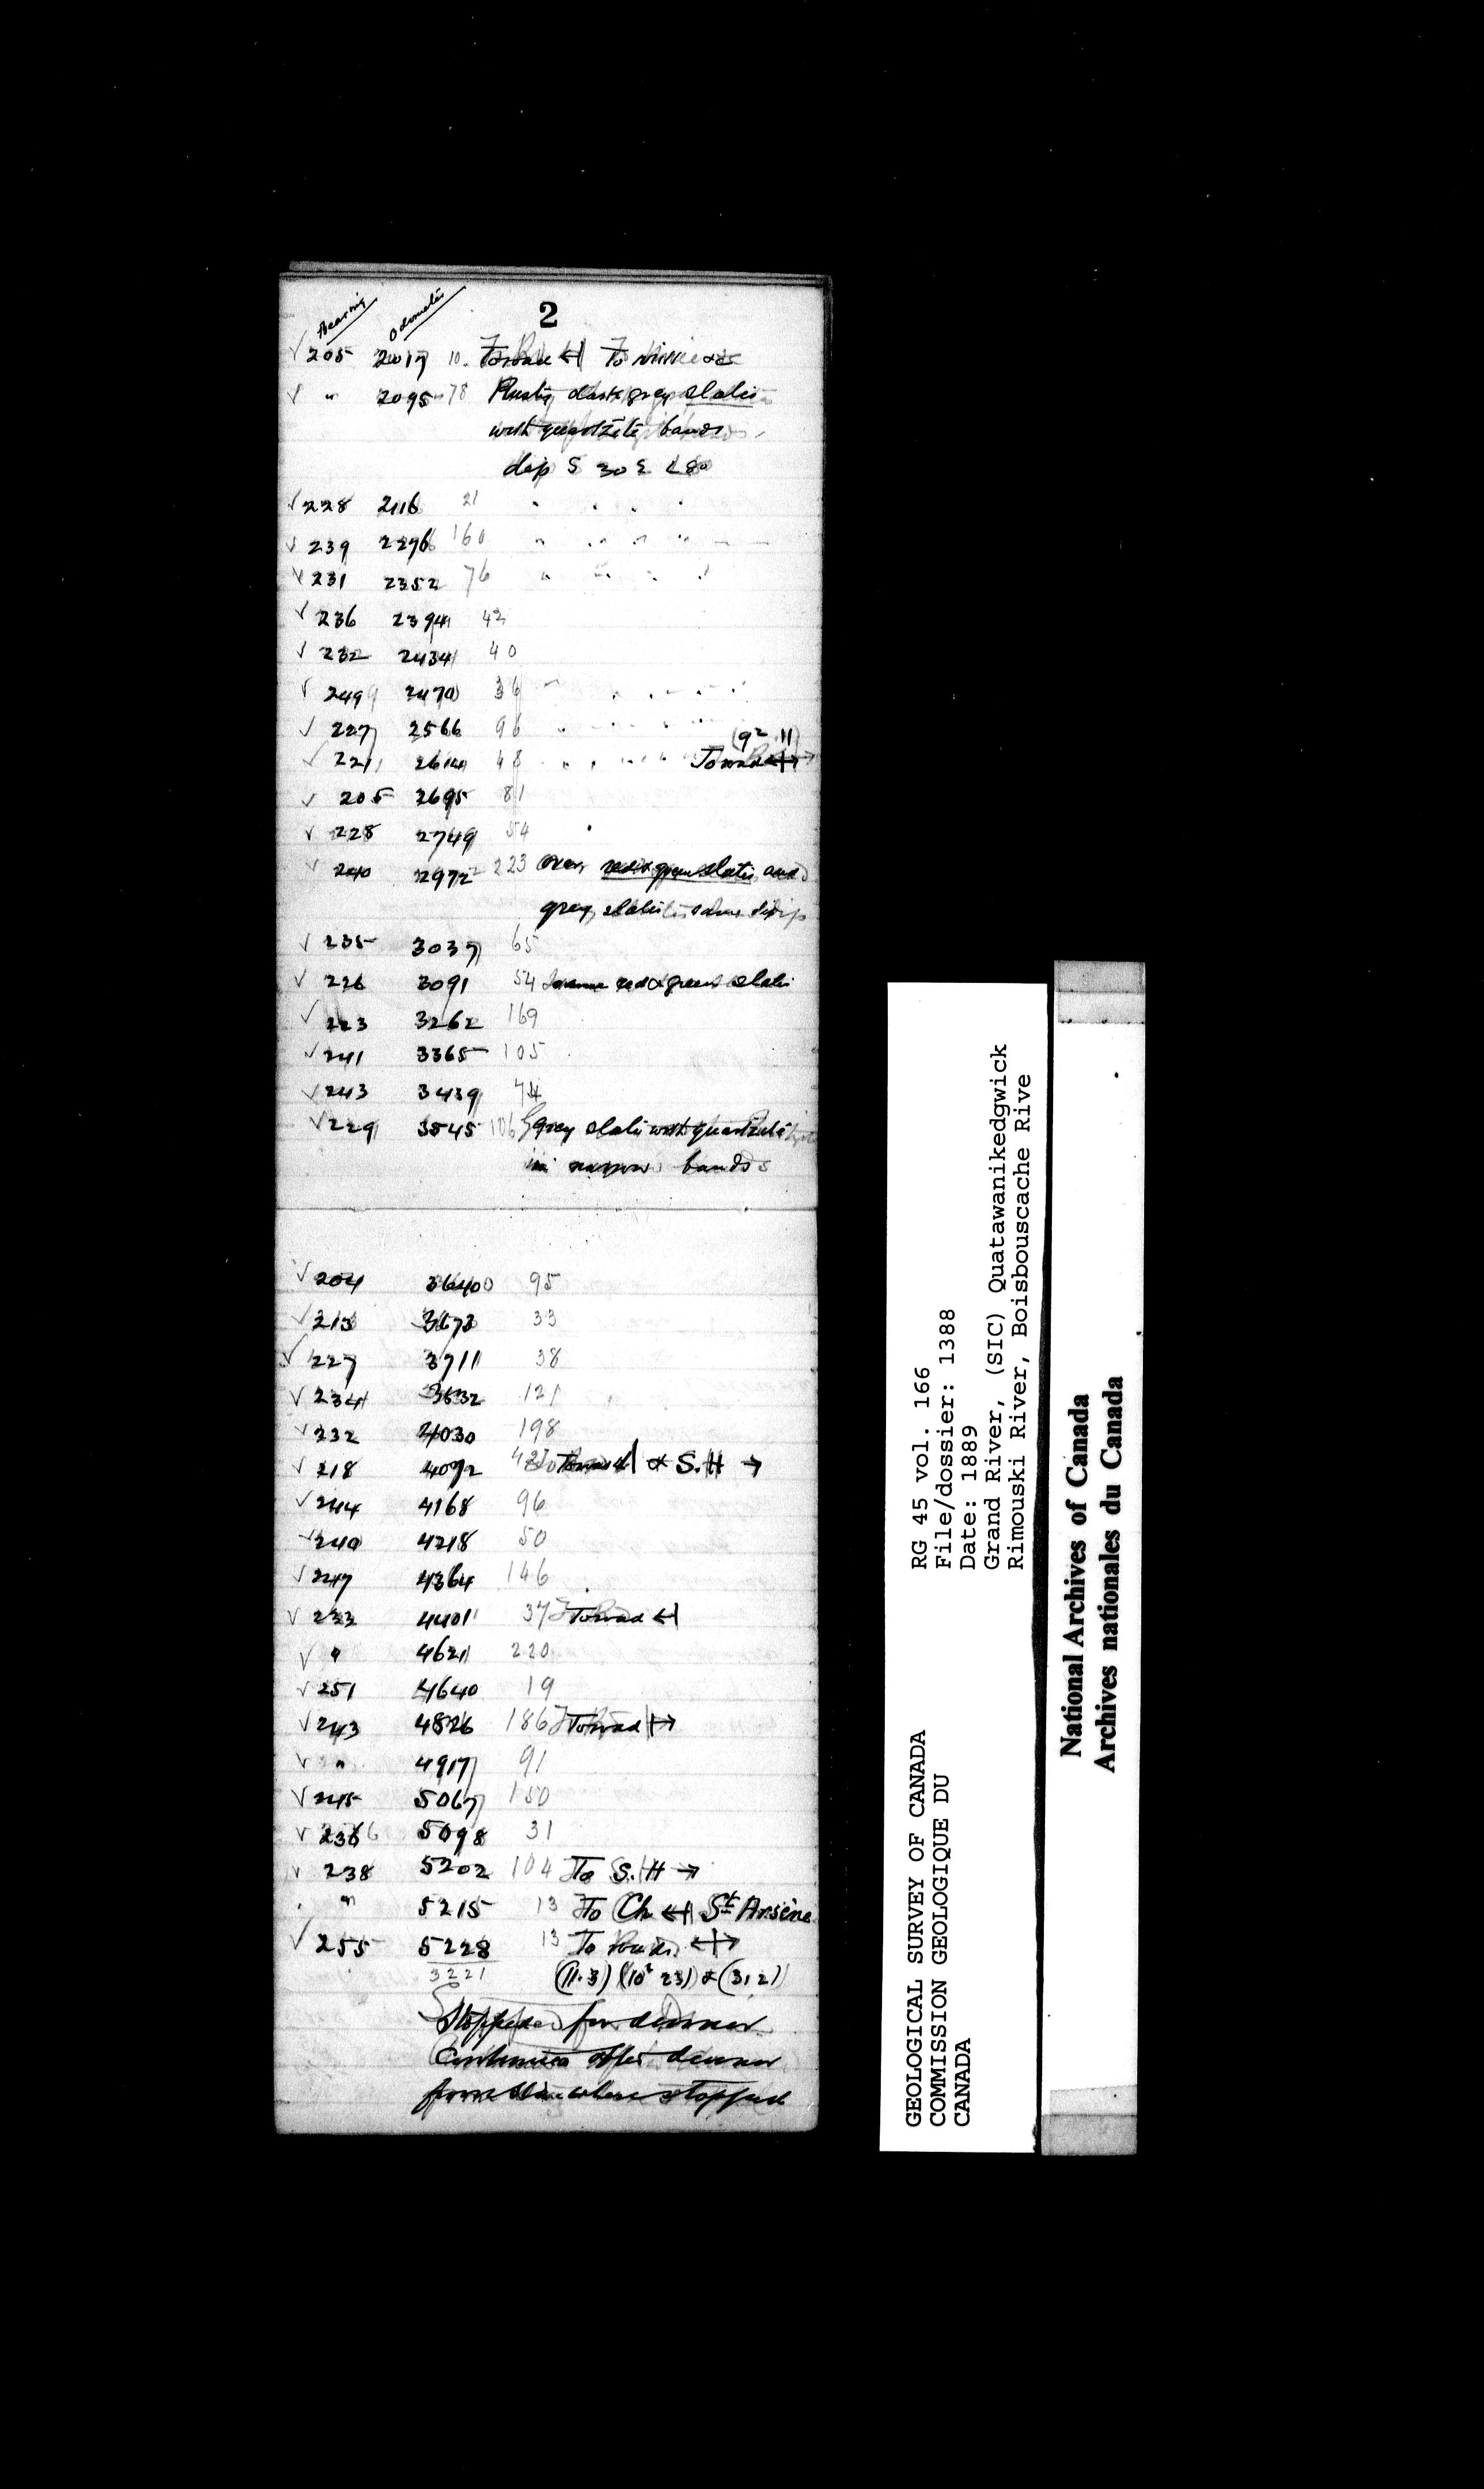 2
Bearing Odometer
√ 205 2017 10. To road ↤ To
√ " 2095 78 Rusty dark grey slates
with quartzite bands
dip S 30 E < 80
√ 228 2116 21 " " " "
√ 239 2276 160 " " " "
√ 231 2352 76 " " " "
√ 236 2394 42
√ 232 2434 40
√ 249 2470 36 " " " "
√ 227 2566 96 " " " "
(9² 11)
√ 221 2614 48 " " " " To road ↔
√ 205 2695 81
√ 228 2749 54
√ 240 2972 223 Over red & green slates and
grey slates same dip
√ 235 3037 65
√ 226 3091 54 Same red & green slates
√ 223 3262 169
√ 241 3365 105
√ 243 3439 74
√ 229 3545 106 Grey slates with quartzite
in narrow bands
√ 204 3640 95
√ 213 3673 33
√ 227 3711 38
√ 234 3832 121
√ 232 4030 198
√ 218 4072 42 To road ↤ & S.H →
√ 244 4168 96
√ 240 4218 50
√ 247 4364 146
√ 233 4401 37 To road ↤
√ " 4621 220
√ 251 4640 19
√ 243 4826 186 To road ↦
√ " 4917 91
√ 245 5067 150
√ 236 5098 31
√ 238 5202 104 To S.H →
" 5215 13 To Ch ↤ St Arsène
√ 255 5228 13 To Road ↔
3221 (11.3) (10² 23) & (31,2)
Stopped for dinner
Continued after dinner
from where stopped
GEOLOGICAL SURVEY OF CANADA
COMMISSION GEOLOGIQUE DU
CANADA
RG 45 vol. 166
File/dossier: 1388
Date: 1889
Grand River, (SIC) Quatawanikedgwick
Rimouski River, Boisbouscache Rive
National Archives of Canada
Archives nationales du Canada